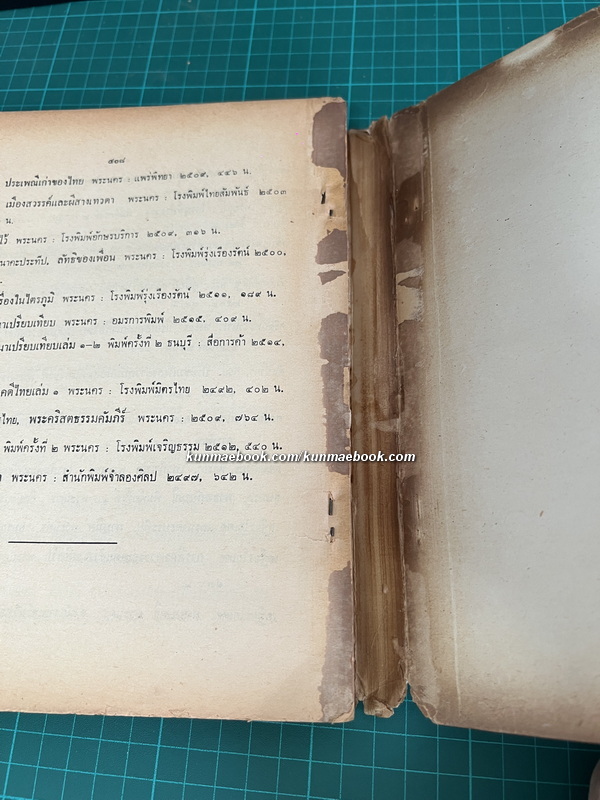 ๕๓๘
ประเพณีเก่าของไทย พระนคร : แพร่พิทยา ๒๕๐๙, ๔๔๖ น.
เมืองสวรรค์และผีสางเทวดา พระนคร : โรงพิมพ์ไทยสัมพันธ์ ๒๕๐๓
น.
ไว้ พระนคร : โรงพิมพ์อักษรบริการ ๒๕๐๙, ๓๑๖ น.
นาคะประทีป, ลัทธิของเพื่อน พระนคร : โรงพิมพ์รุ่งเรืองรัตน์ ๒๕๐๐,
รื่องในไตรภูมิ พระนคร : โรงพิมพ์รุ่งเรืองรัตน์ ๒๕๑๑, ๑๘๙ น.
าเปรียบเทียบ พระนคร : อมรการพิมพ์ ๒๕๑๕. ๔๐๙ น.
นาเปรียบเทียบเล่ม ๑-๒ พิมพ์ครั้งที่ ๒ ธนบุรี : สื่อการค้า ๒๕๑๔,
คดีไทยเล่ม ๑ พระนคร : โรงพิมพ์มิตรไทย ๒๔๙๒, ๔๐๒ น.
ไทย, พระคริสตธรรมคัมภีร์ พระนคร : ๒๕๐๙, ๗๖๔ น.
พิมพ์ครั้งที่ ๒ พระนคร : โรงพิมพ์เจริญธรรม ๒๕๑๒, ๕๔๐ น.
พระนคร : สำนักพิมพ์จำลองศิลป ๒๔๙๗, ๖๔๒ น.
kunmaebook.com/kunmaebook.com